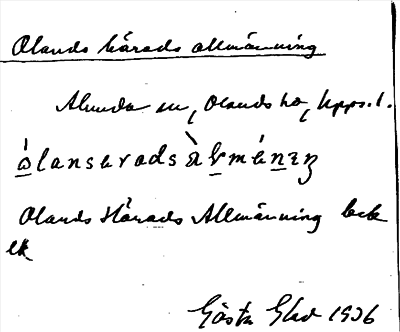 Olands härads allmänning
Alunda sn, Olands hd, Upps. l.
Olands Härads Allmänning bebe
ek
Gösta Glad 1936